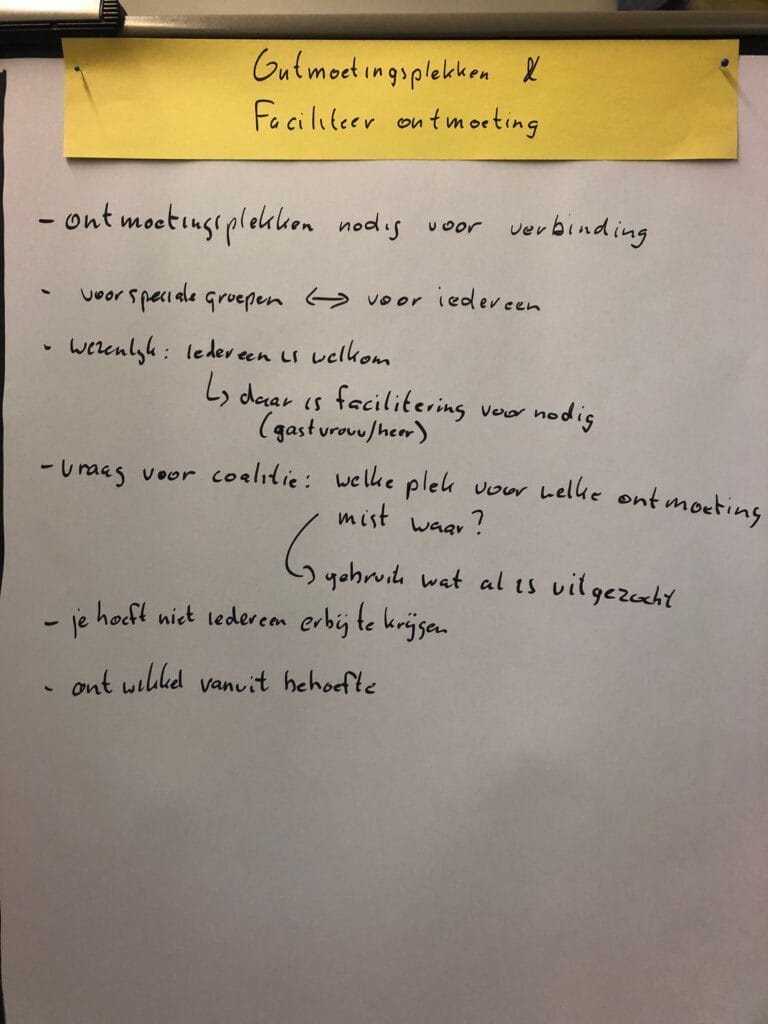 Ontmoetingsplekken &
Faciliteer ontmoeting
- ontmoetingsplekken nodig voor verbinding
- voor speciale groepen <-> voor iedereen
- Wezenlijk: Iedereen is welkom
↳ daar is facilitering voor nodig
(gastvrouw/heer)
- vraag voor coalitie: welke plek voor welke ontmoeting
mist waar?
↳ gebruik wat al is uitgezocht
- je hoeft niet iedereen erbij te krijgen
- ontwikkel vanuit behoefte